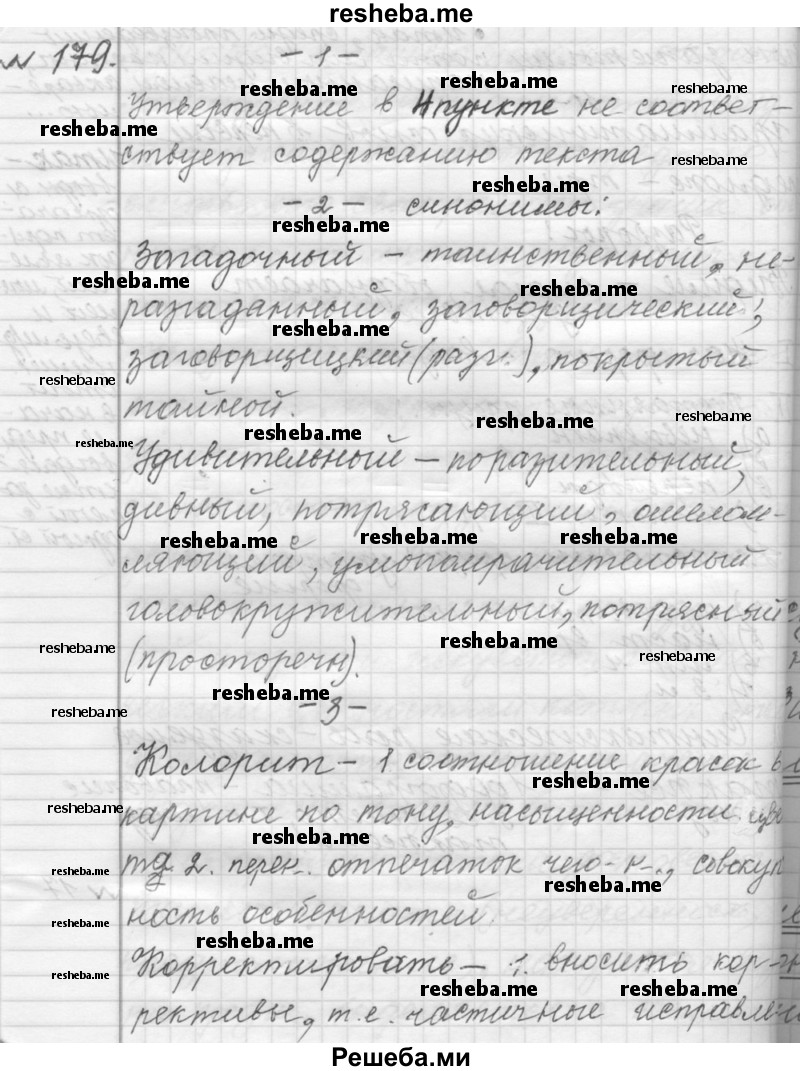 resheba.me
№ 179. – 1 –
resheba.me resheba.me resheba.me
Утверждение в 4 пункте не соответ-
resheba.me
ствует содержанию текста resheba.me
resheba.me
– 2 – синонимы:
resheba.me
Загадочный – таинственный, не-
resheba.me resheba.me
разгаданный, заговорщический,
resheba.me
заговорщицкий (разг.), покрытый
resheba.me
тайной. resheba.me resheba.me
resheba.me resheba.me
Удивительный – поразительный,
дивный, потрясающий, ошелом-
resheba.me resheba.me resheba.me
ляющий, умопомрачительный
головокружительный, потрясный
resheba.me resheba.me resheba.me
(просторечн).
resheba.me
resheba.me – 3 –
Колорит – 1 соотношение красок в
resheba.me
resheba.me картине по тону, насыщенности цве
resheba.me
resheba.me та 2. перен. отпечаток чего-н., совокуп
resheba.me
resheba.me ность особенностей.
resheba.me
resheba.me Корректировать – 1. вносить кор-
resheba.me resheba.me
рективы, т.е. частичные исправлен
Решеба.ми